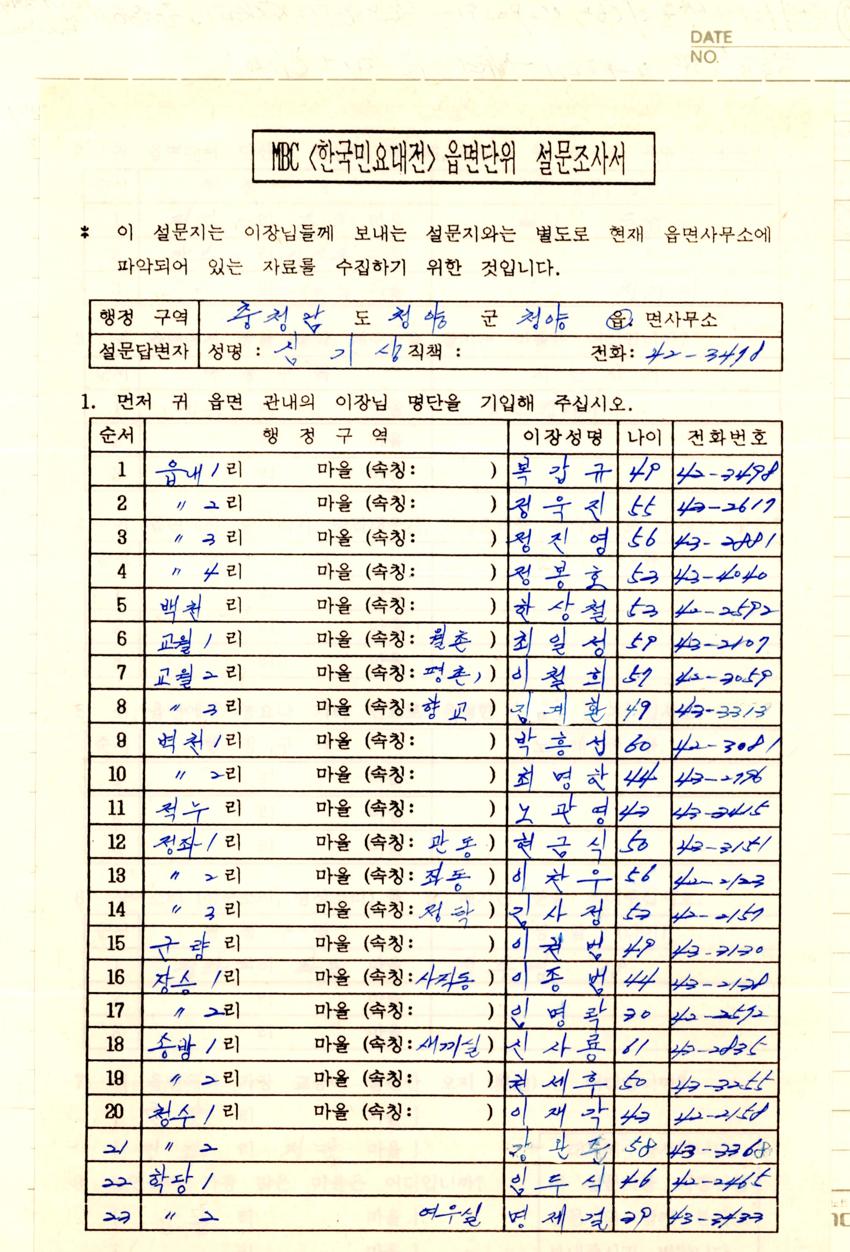 DATE
NO.
MBC <한국민요대전> 읍면단위 설문조사서
* 이 설문지는 이장님들께 보내는 설문지와는 별도로 현재 읍면사무소에
파악되어 있는 자료를 수집하기 위한 것입니다.
행정 구역 충청남 도 청양 군 청양 읍. 면사무소
설문답변자 성명 : 심기상 직책 : 전화: 42-3498
1. 먼저 귀 읍면 관내의 이장님 명단을 기입해 주십시오.
순서 행 정 구 역 이장성명 나이 전화번호
1 읍내 1 리 마을 (속칭: ) 복갑규 49 42-3498
2 〃 2 리 마을 (속칭: ) 정욱진 55 43-2617
3 〃 3 리 마을 (속칭: ) 정진영 56 43-2881
4 〃 4 리 마을 (속칭: ) 정봉호 53 43-4040
5 백천 리 마을 (속칭: ) 한상철 53 42-2592
6 교월 1 리 마을 (속칭: 월촌 ) 최일성 59 43-2107
7 교월 2 리 마을 (속칭: 평촌 ) 이철희 57 42-3059
8 〃 3 리 마을 (속칭: 향교 ) 김계환 49 43-3313
9 벽천 1 리 마을 (속칭: ) 박흥섭 60 42-3081
10 〃 2 리 마을 (속칭: ) 최명한 44 43-2796
11 적누 리 마을 (속칭: ) 노관영 43 43-3415
12 정좌 1 리 마을 (속칭: 관동 ) 현금식 50 43-3151
13 〃 2 리 마을 (속칭: 좌동 ) 이찬우 56 42-2123
14 〃 3 리 마을 (속칭: 정학 ) 김사정 53 42-2157
15 군량 리 마을 (속칭: ) 이권범 49 43-3130
16 장승 1 리 마을 (속칭: 사직동 ) 이종범 44 43-2138
17 〃 2 리 마을 (속칭: ) 임명락 30 42-2592
18 송방 1 리 마을 (속칭: 새끼실 ) 신사룡 61 43-2835
19 〃 2 리 마을 (속칭: ) 권세후 50 43-3255
20 청수 1 리 마을 (속칭: ) 이재각 43 42-2158
21 〃 2 강관준 58 43-3368
22 학당 1 임두식 46 42-2465
23 〃 2 여우실 명제결 39 43-3433